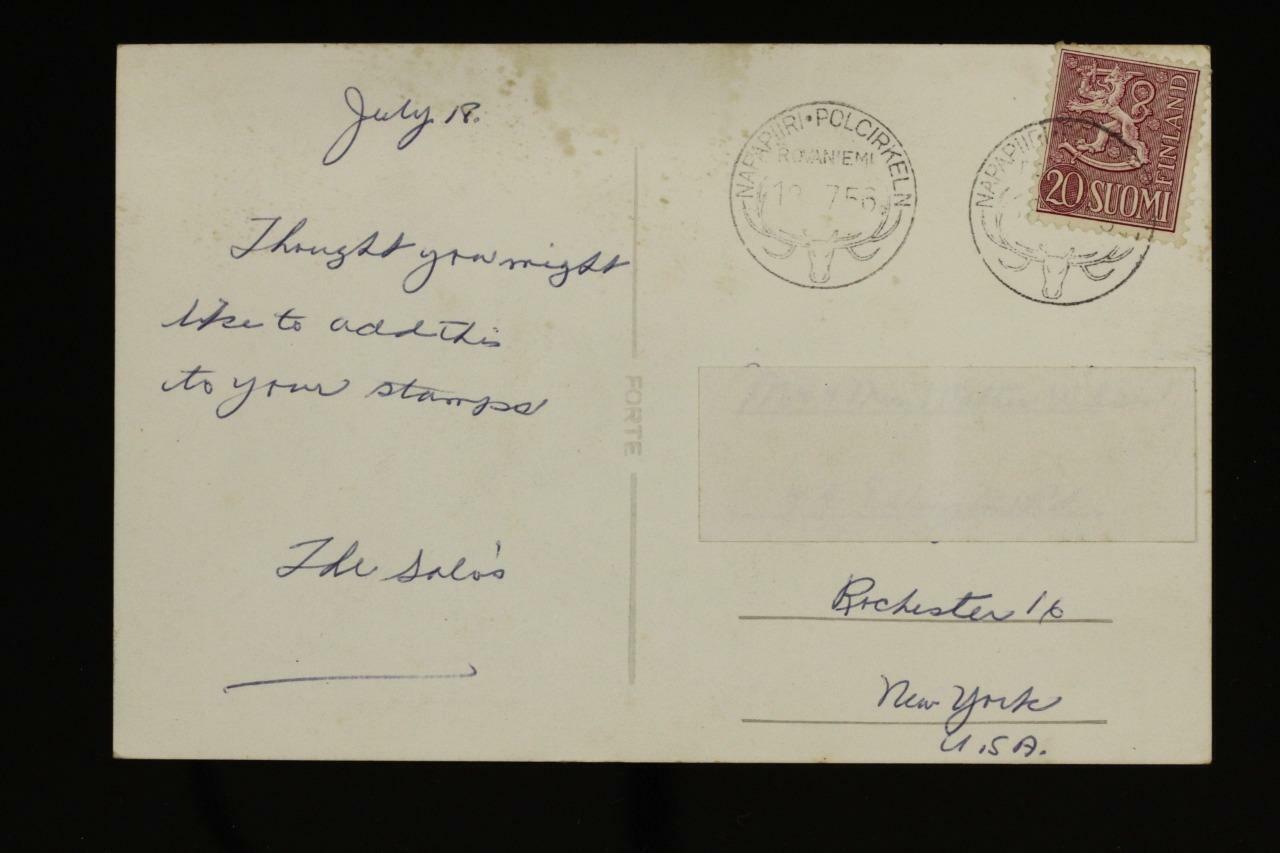 July 18.
Thought you might
like to add this
to your stamps
The Salo's
FORTE
NAPAPIIRI • POLCIRKELN
ROVANIEMI
7 56
NAPAPIIRI
20 SUOMI
FINLAND
Rochester 16
New York
U.S.A.